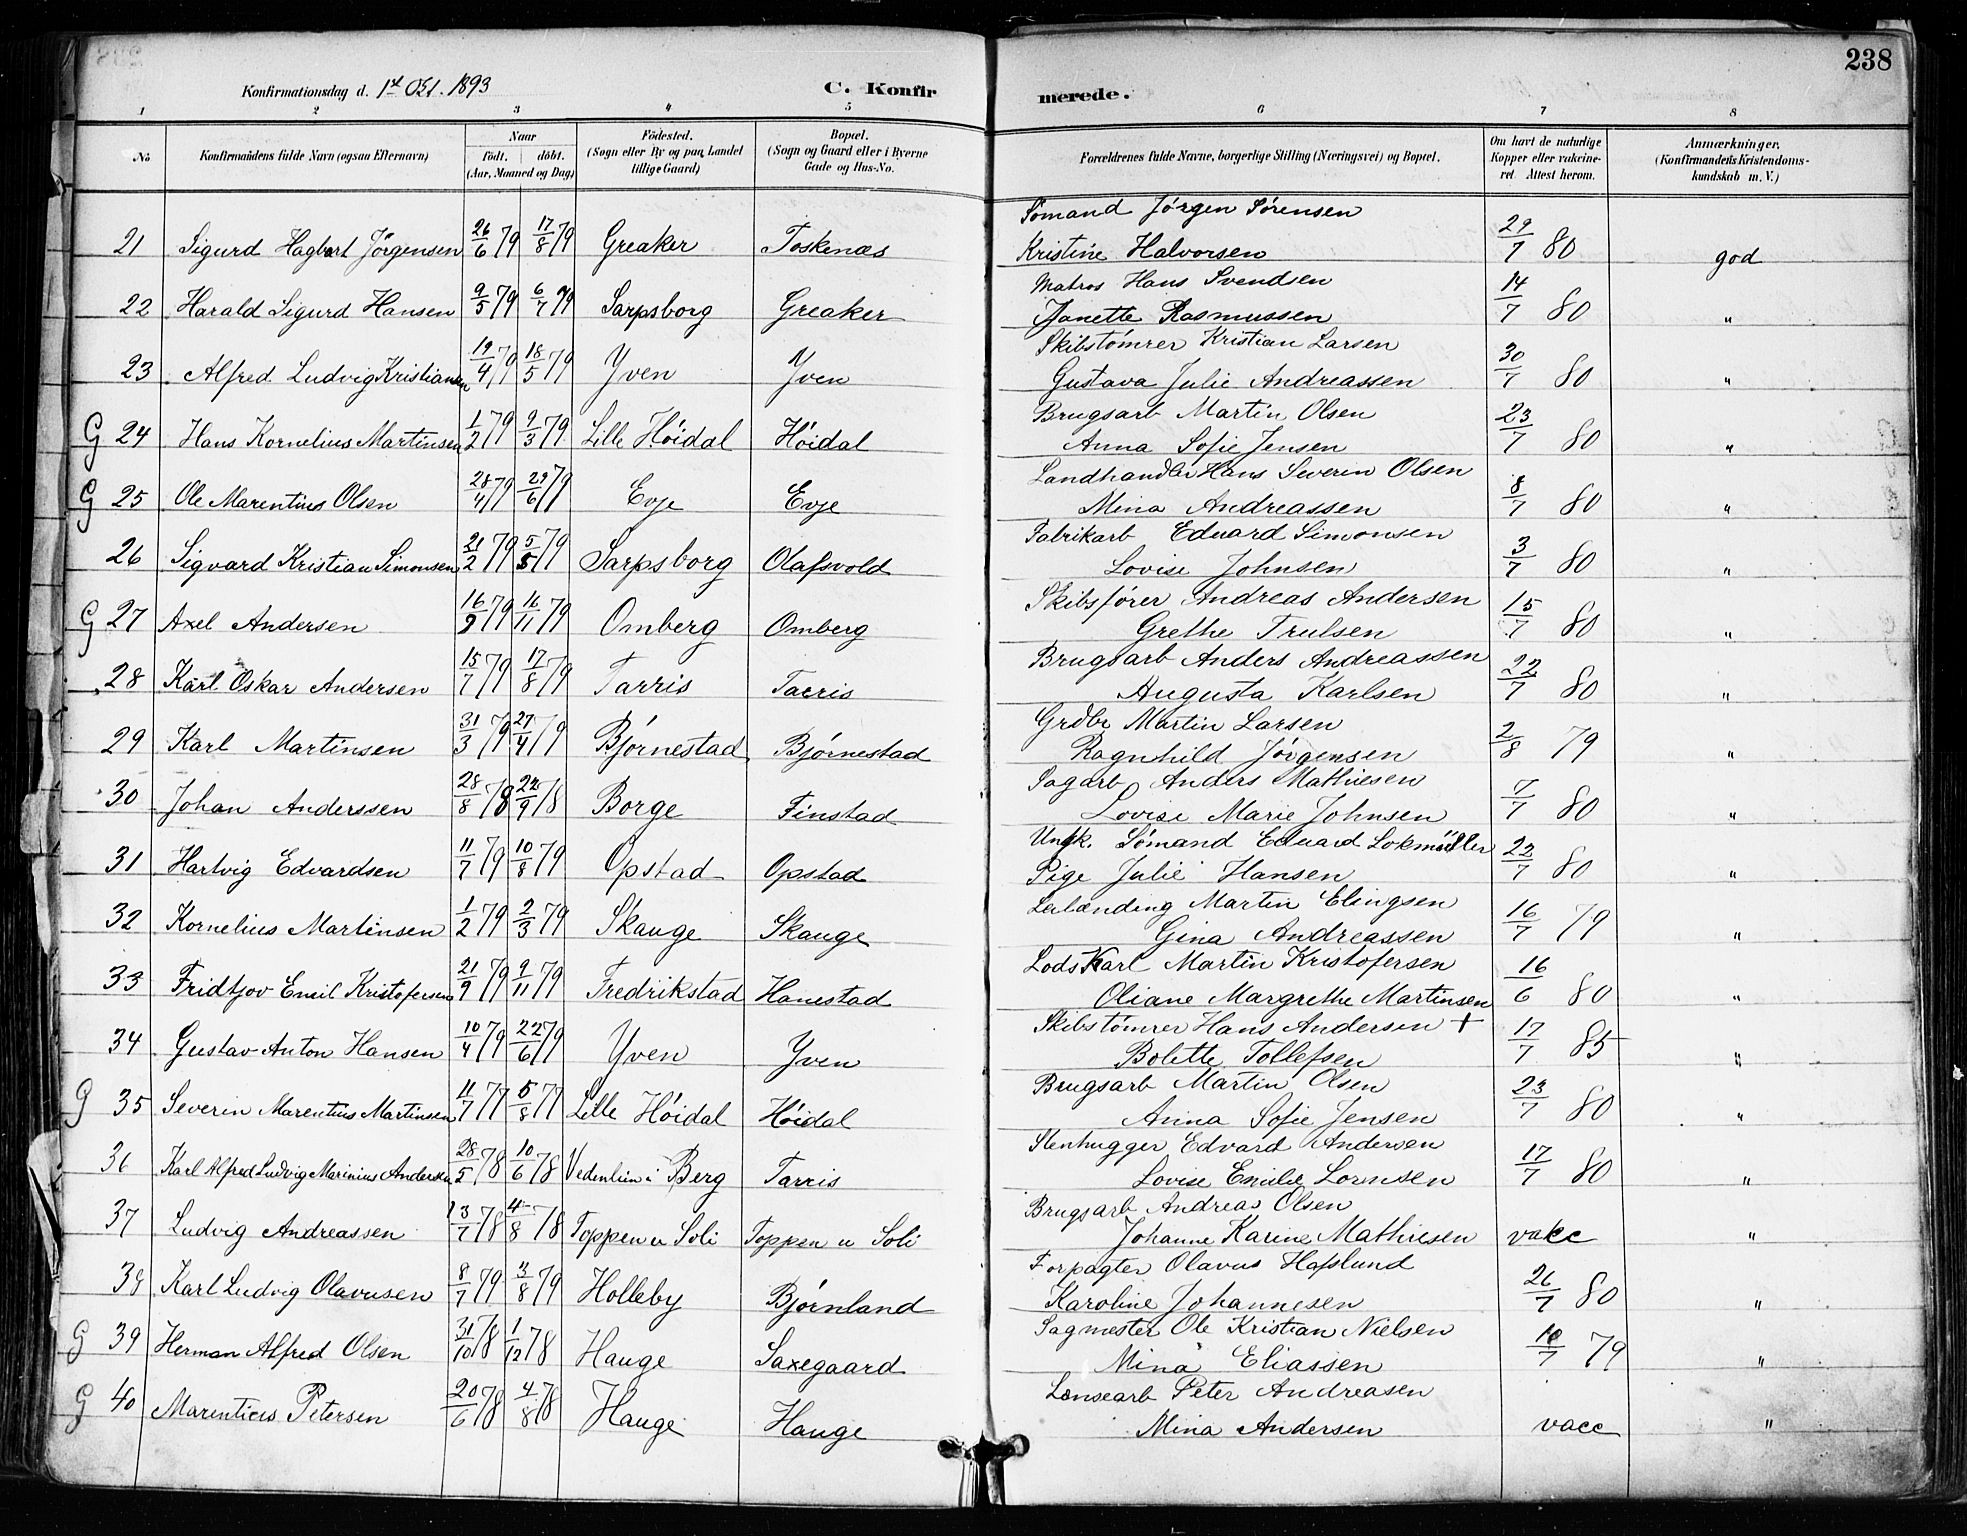 238
Konfirmationsdag d. 1st Okt. 1893 C. Konfirmerede.
1 2 3 4 5 6 7 8
No Konfirmandens fulde Navn (ogsaa Efternavn) Naar födt. döbt. (Aar, Maaned og Dag) Födested. (Sogn eller By og paa Landet tillige Gaard) Bopæl. (Sogn og Gaard eller i Byerne Gade og Hus-No. Forældrenes fulde Navne, borgerlige Stilling (Næringsvei) og Bopæl. Om havt de naturlige Kopper eller vakcineret Attest herom. Anmærkninger, (Konfirmandens Kristendomskundskab m. V.)
Sömand Jörgen Sörensen
21 Sigurd Hagbart Jörgensen 26/6 79 17/8 79 Greaker Toskenæs Kristine Halvorsen 29/7 80 god
Matros Hans Svendsen
22 Harald Sigurd Hansen 9/5 79 6/7 79 Sarpsborg Greaker Janette Rasmussen 14/7 80 "
Skibstömrer Kristian Larsen
23 Alfred Ludvig Kristiansen 19/4 79 18/5 79 Yven Yven Gustava Julie Andreassen 30/7 80 "
Brugsarb Martin Olsen
G 24 Hans Kornelius Martinsen 1/2 79 9/3 79 Lille Höidal Höidal Anna Sofie Jensen 23/7 80 "
Landhandler Hans Severin Olsen
G 25 Ole Marentius Olsen 28/4 79 29/6 79 Evje Evje Mina Andreassen 8/7 80 "
Fabrikarb Eduard Simonsen
26 Sigvard Kristian Simonsen 21/2 79 5/5 79 Sarpsborg Olafsvold Lovise Johnsen 3/7 80 "
Skibsförer Andreas Andersen
G 27 Axel Andersen 16/9 79 16/11 79 Omberg Omberg Grethe Trulsen 15/7 80 "
Brugsarb Anders Andreassen
28 Karl Oskar Andersen 15/7 79 17/8 79 Tarris Tarris Augusta Karlsen 22/7 80 "
Grdbr Martin Larsen
29 Karl Martinsen 31/3 79 27/4 79 Björnestad Björnestad Ragnhild Jörgensen 2/8 79 "
Sagarb Anders Mathiesen
30 Johan Anderssen 28/8 78 22/9 78 Borge Finstad Lovise Marie Johnsen 7/7 80 "
Ungk. Sömand Eduard Lokmöller
31 Hartvig Edvardsen 11/7 79 10/8 79 Opstad Opstad Pige Julie Hansen 22/7 80 "
Leilænding Martin Elingsen
32 Kornelius Martinsen 1/2 79 2/3 79 Skauge Skauge Gina Andreassen 16/7 79 "
Lods Karl Martin Kristofersen
33 Fridtjov Emil Kristofersen 21/9 79 9/11 79 Fredrikstad Hanestad Oliane Margrethe Martinsen 16/6 80 "
Skibstömrer Hans Andersen +
34 Gustav Anton Hansen 10/4 79 22/6 79 Yven Yven Bolette Tollefsen 17/7 85 "
Brugsarb Martin Olsen
G 35 Severin Marentius Martinsen 11/7 77 5/8 77 Lille Höidal Höidal Anna Sofie Jensen 23/7 80 "
Stenhugger Edvard Andersen
36 Karl Alfred Ludvig Marinius Andersen 28/5 78 10/6 78 Vedenlien i Berg Tarris Lovise Emilie Lornsen 17/7 80 "
Brugsarb Andreas Olsen
37 Ludvig Andreassen 13/7 78 4/8 78 Toppen u Soli Toppen u Soli Johanne Karine Mathiesen vakc "
Forpagter Olavus Hafslund
38 Karl Ludvig Olavusen 8/7 79 3/8 79 Holleby Björnland Karoline Johannesen 26/7 80 "
Sagmester Ole Kristian Nielsen
G 39 Herman Alfred Olsen 31/10 78 1/12 78 Hauge Saxegaard Mina Eliassen 10/7 79 "
Lænsearb Peter Andreasen
G 40 Marentius Petersen 20/6 78 4/8 78 Hauge Hauge Mina Andersen vacc "